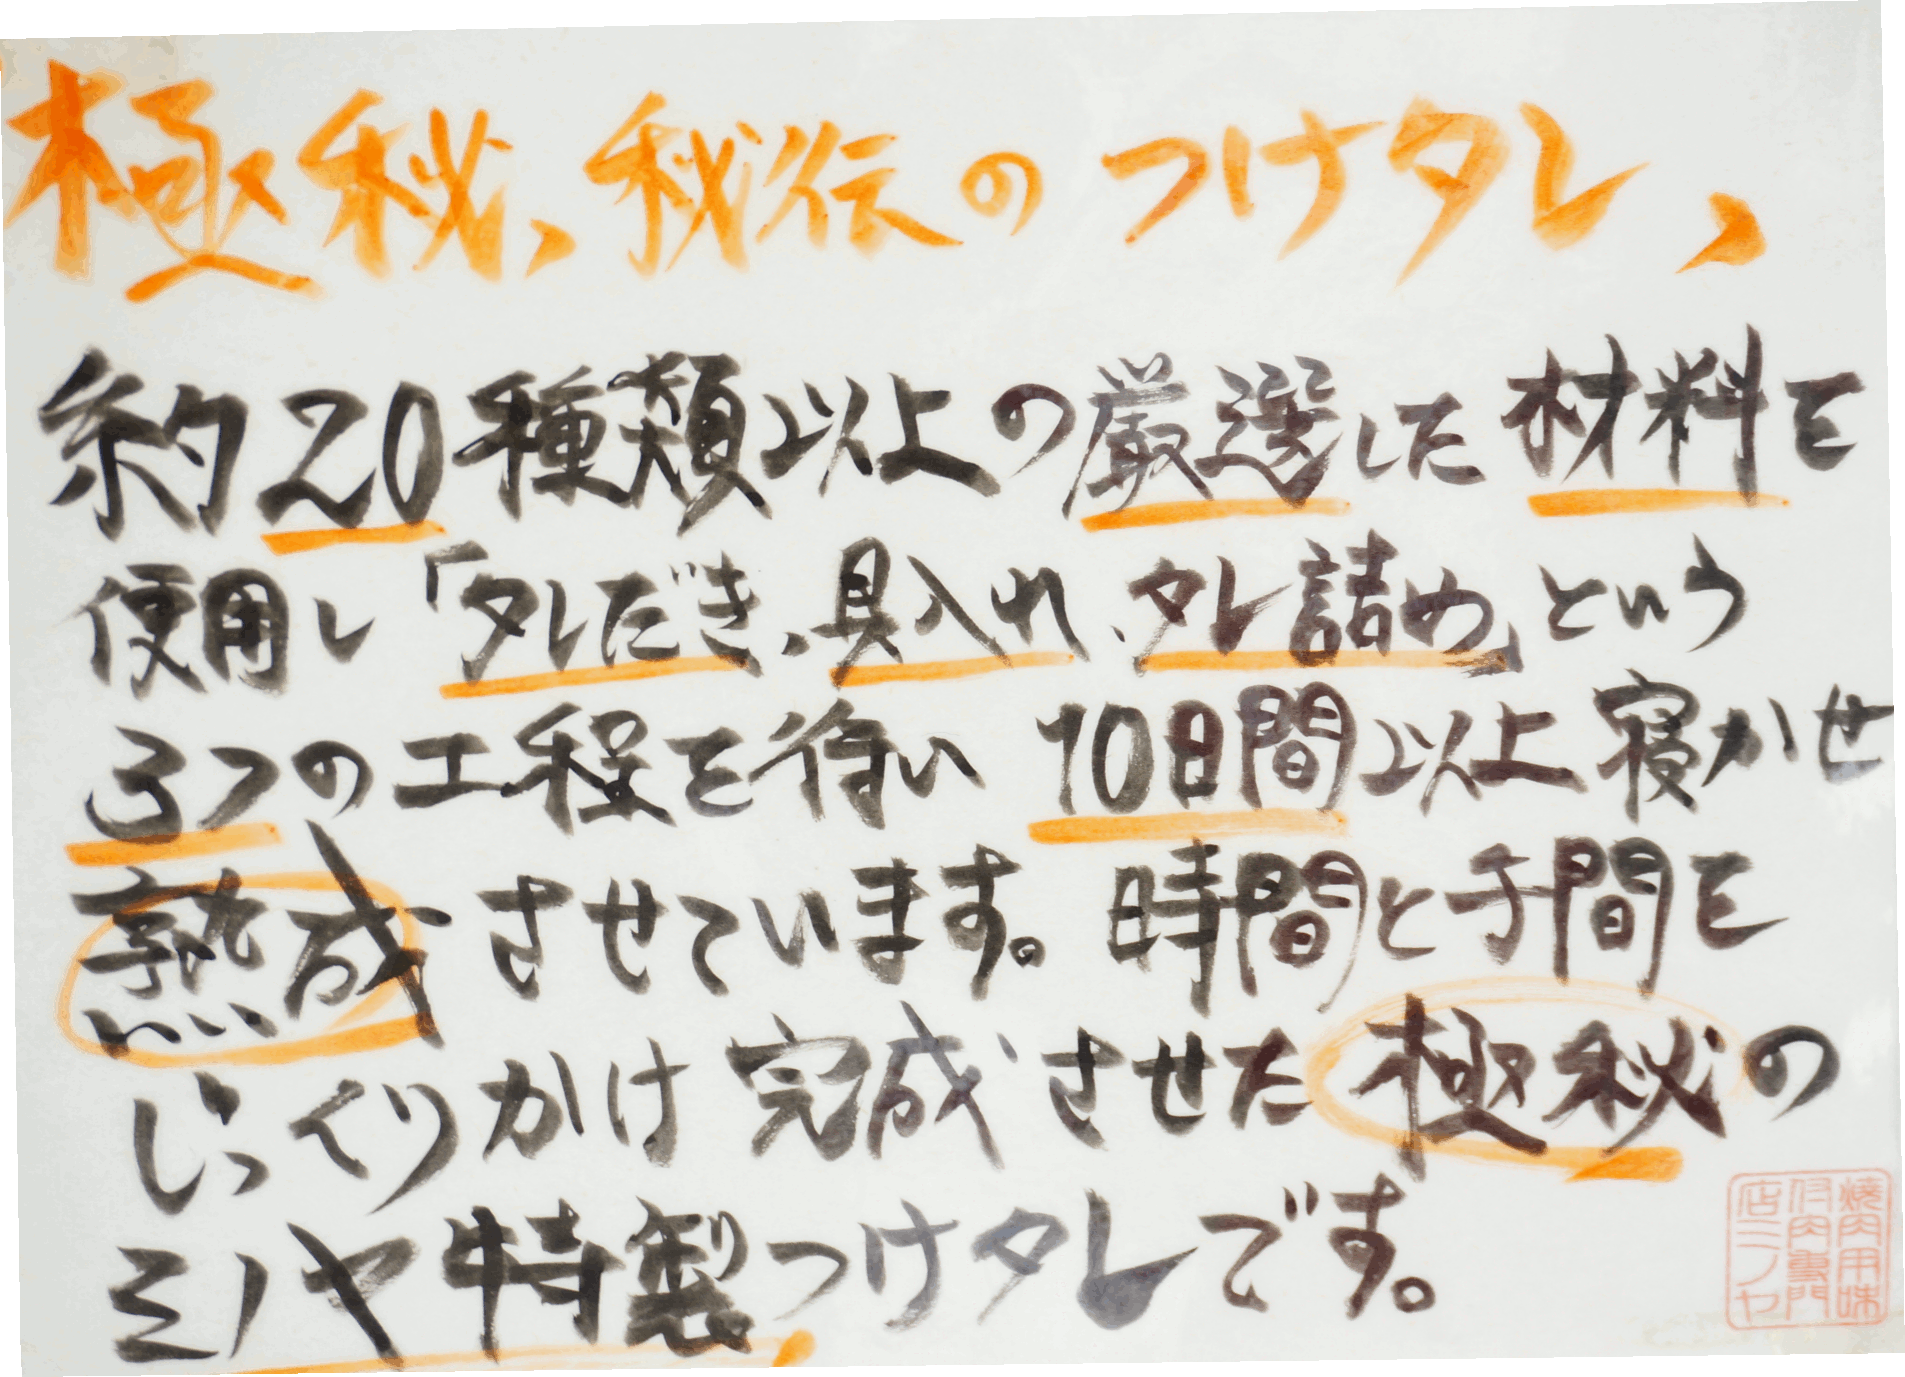 極秘、秘伝のつけタレ、
約20種類以上の厳選した材料を
使用し「タレだき、具入れ、タレ詰め」という
3つの工程を行い 10日間以上寝かせ
熟成させています。時間と手間を
じっくりかけ完成させた極秘の
ミノヤ特製つけタレです。
焼肉用味
付肉専門
店ミノヤ